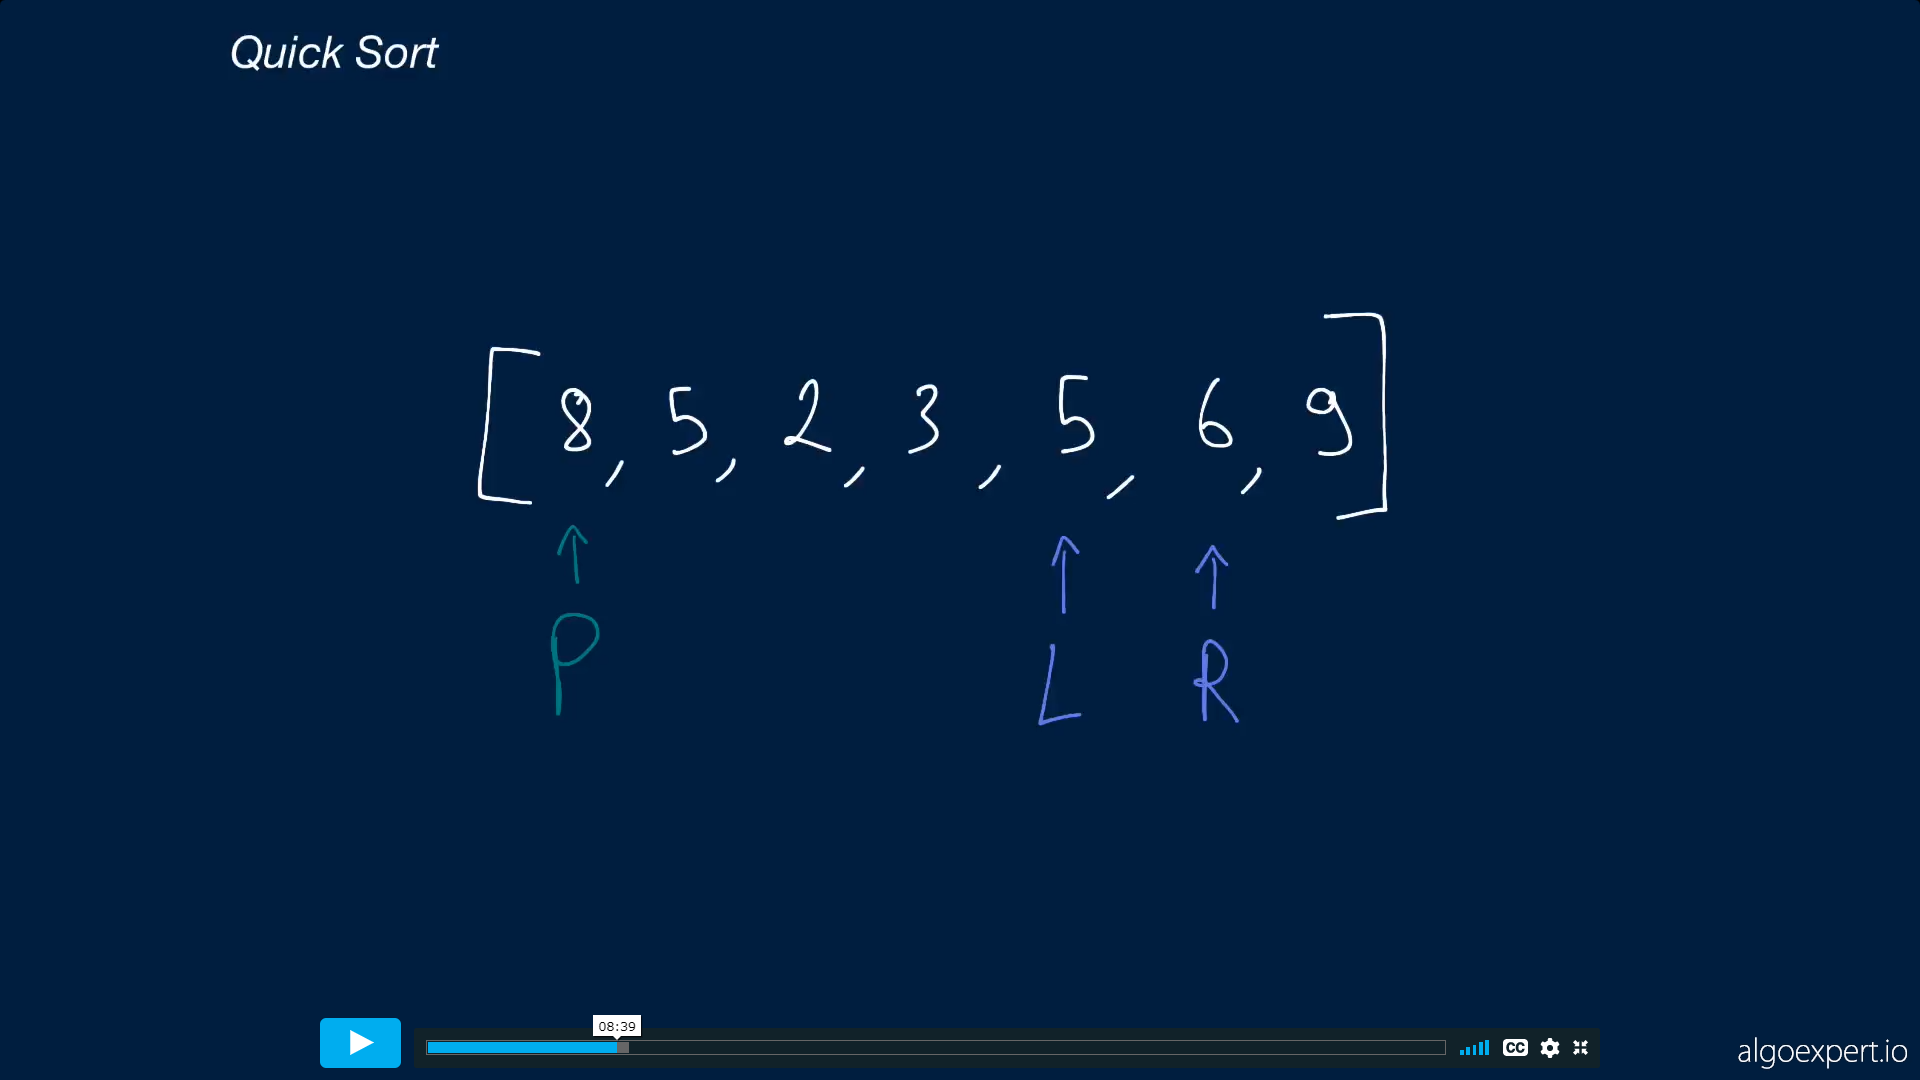 Quick Sort
[8, 5, 2, 3, 5, 6, 9]
P L R
08:39
CC
algoexpert.io